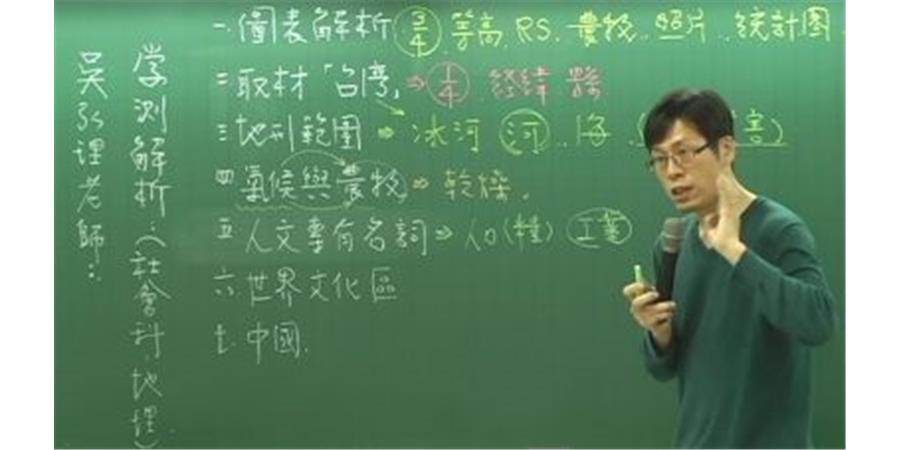 吳 理老師：
学測解析：（社會科 地理）
一.圖表解析 3/4 等高.RS.農牧.照片.統計图.
二.取材「台湾」⇒ 1/4 経緯
三.地形範圍 ⇒ 冰河 河 海 （ 害）
四.氣候與農牧 ⇒ 乾燥.
五.人文專有名詞 ⇒ 人口(種) 工業
六.世界文化區
七.中國.